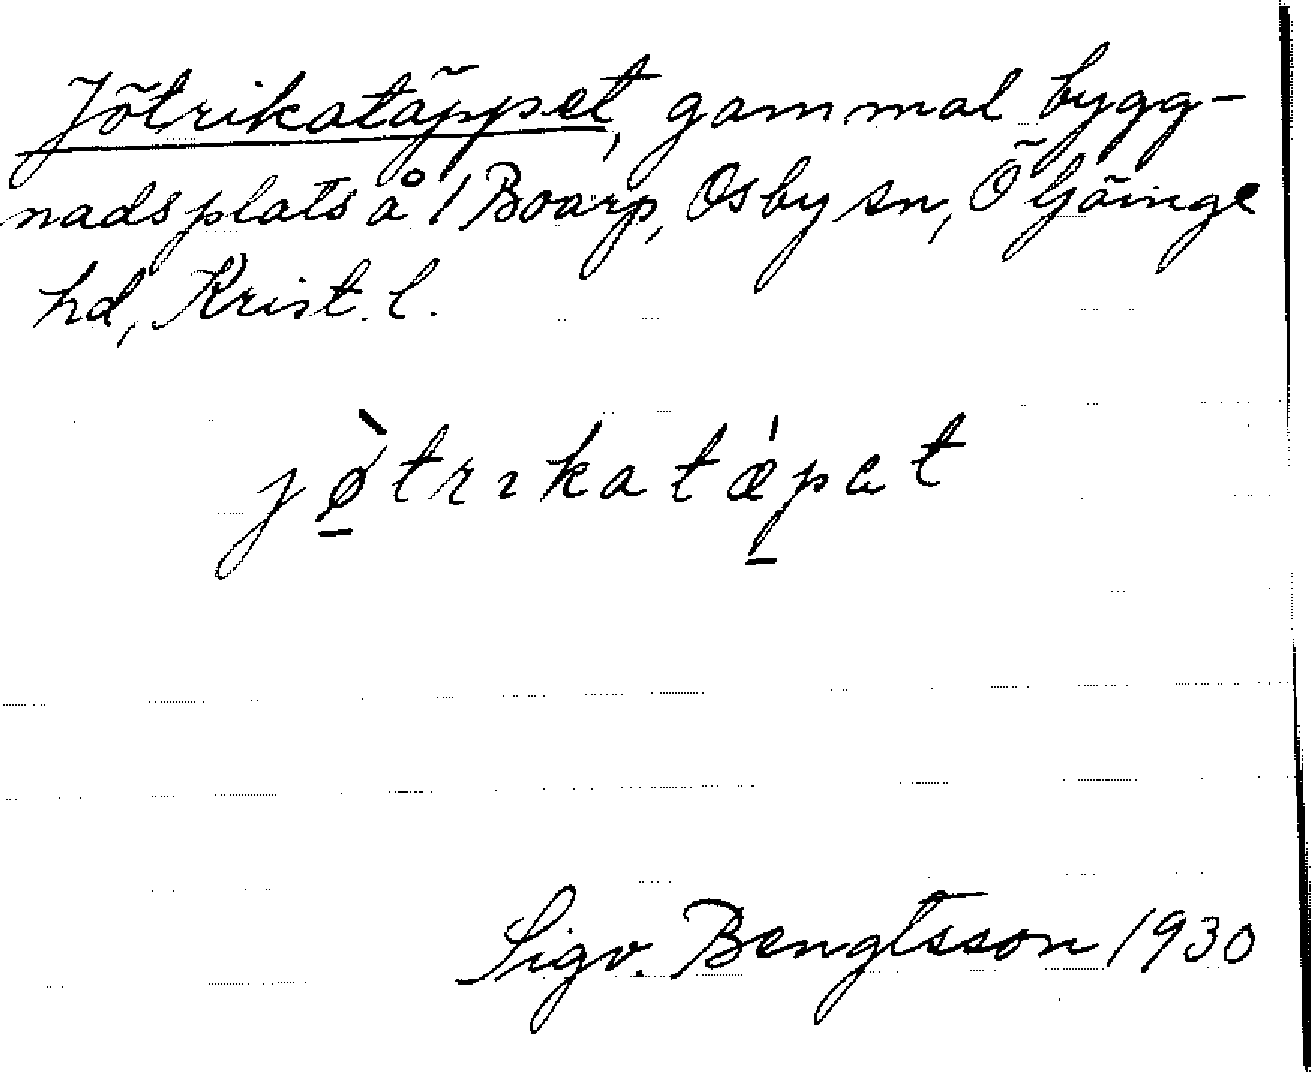 Jötrikatäppet, gammal bygg-
nadsplats å 1 Boarp, Osby sn, Ö Göinge
hd, Krist. l.
jø̀trıkatǽpet
Sigv. Bengtsson 1930